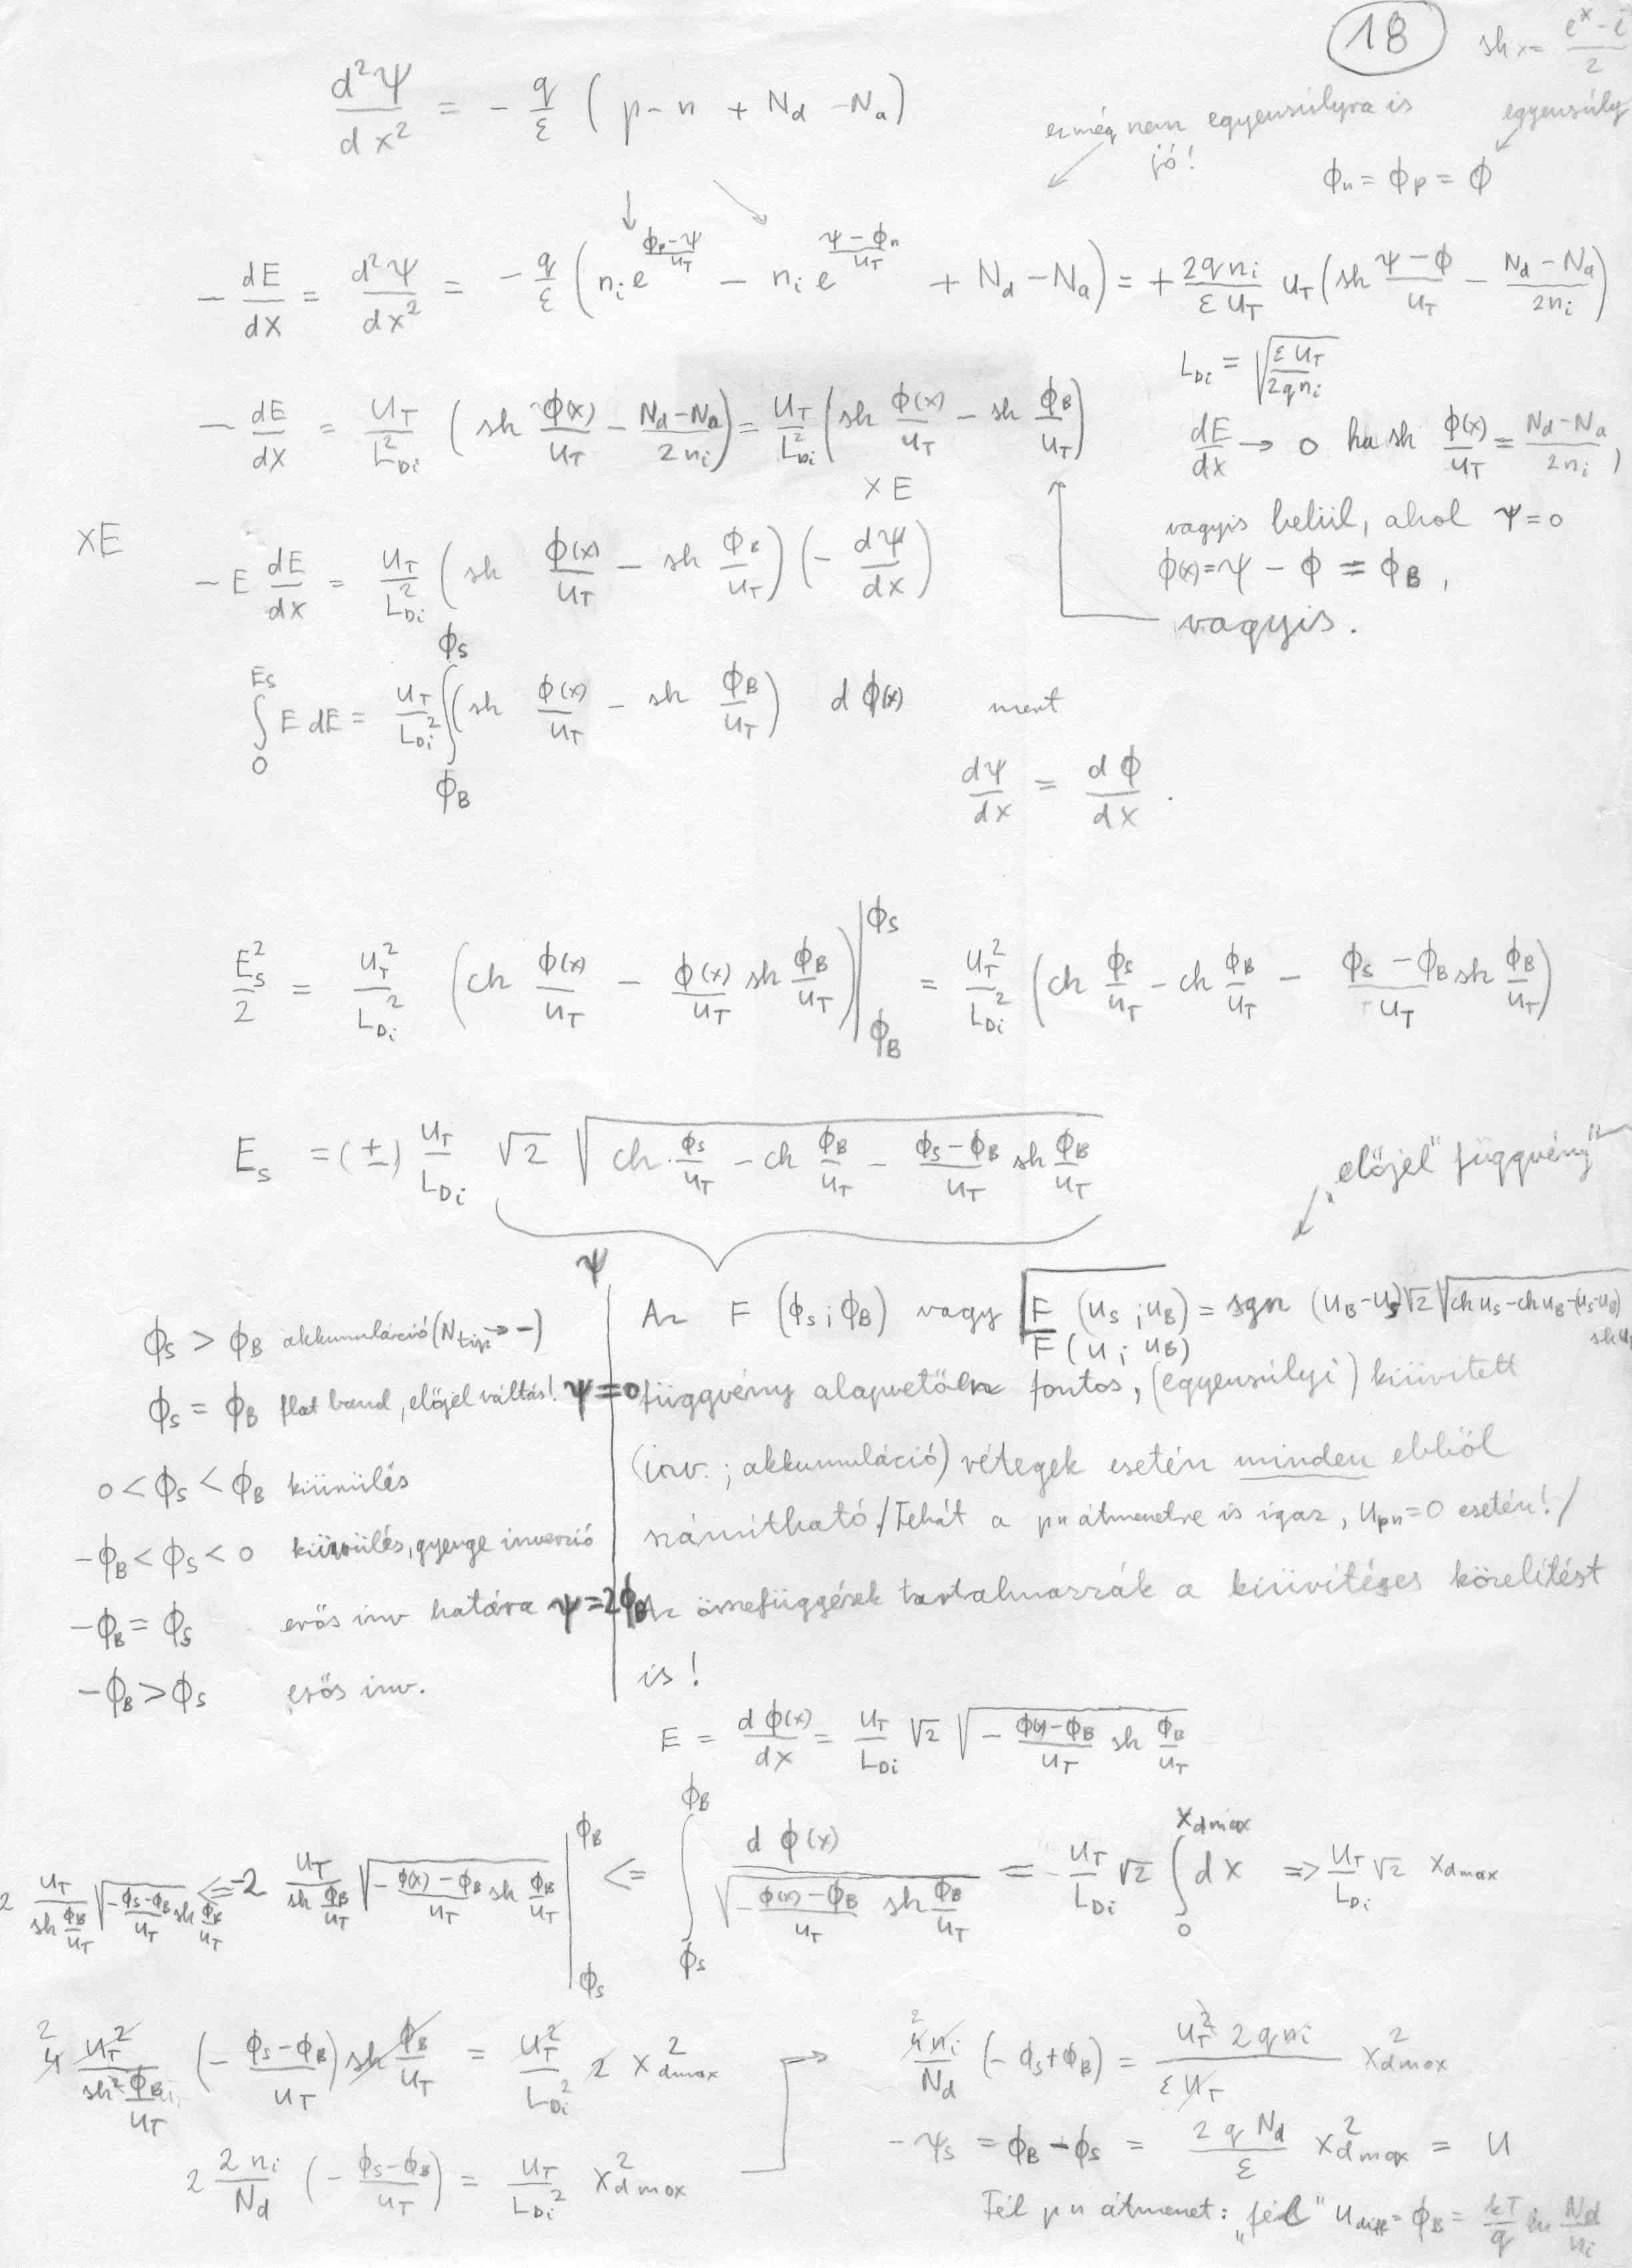 18 sh x = (e^x - e
2
d²Ψ/dx² = - q/ε ( p - n + N_d - N_a )
ez még nem egyensúlyra is jó!
egyensúly
ϕ_n = ϕ_p = ϕ
- dE/dx = d²Ψ/dx² = - q/ε ( n_i e^((ϕ_p - Ψ)/U_T) - n_i e^((Ψ - ϕ_n)/U_T) + N_d - N_a ) = + 2qn_i/(εU_T) U_T ( sh (Ψ - ϕ)/U_T - (N_d - N_a)/2n_i )
L_Di = √(εU_T/2qn_i)
- dE/dx = U_T/L²_Di ( sh ϕ(x)/U_T - (N_d - N_a)/2n_i ) = U_T/L²_Di ( sh ϕ(x)/U_T - sh ϕ_B/U_T )
dE/dx → 0 ha sh ϕ(x)/U_T = (N_d - N_a)/2n_i ,
vagyis belül, ahol Ψ = 0
ϕ(x) = Ψ - ϕ = ϕ_B ,
vagyis.
xE
xE
- E dE/dx = U_T/L²_Di ( sh ϕ(x)/U_T - sh ϕ_B/U_T ) ( - dΨ/dx )
∫_0^(E_s) E dE = U_T/L²_Di ∫_(ϕ_B)^(ϕ_S) ( sh ϕ(x)/U_T - sh ϕ_B/U_T ) d ϕ(x) mert
dΨ/dx = dϕ/dx .
E_s²/2 = U_T²/L_Di² ( ch ϕ(x)/U_T - ϕ(x)/U_T sh ϕ_B/U_T ) |_(ϕ_B)^(ϕ_S) = U_T²/L_Di² ( ch ϕ_S/U_T - ch ϕ_B/U_T - (ϕ_S - ϕ_B)/U_T sh ϕ_B/U_T )
E_s = (±) U_T/L_Di √2 √( ch ϕ_S/U_T - ch ϕ_B/U_T - (ϕ_S - ϕ_B)/U_T sh ϕ_B/U_T )
„előjel" függvény"
Ψ
ϕ_S > ϕ_B akkumuláció (N típ → -)
ϕ_S = ϕ_B flat band, előjel váltás! Ψ = 0
0 < ϕ_S < ϕ_B kiürülés
-ϕ_B < ϕ_S < 0 kiürülés, gyenge inverzió
-ϕ_B = ϕ_S erős inv határa Ψ = 2ϕ_B
-ϕ_B > ϕ_S erős inv.
Az F (ϕ_S ; ϕ_B) vagy F (U_S ; U_B) = sgn (U_B - U_S) √2 √(ch U_S - ch U_B - (U_S - U_B) sh U
F (U ; U_B)
függvény alapvetően fontos, (egyensúlyi) kiürített
(inv. ; akkumuláció) rétegek esetén minden ebből
számítható. /Tehát a pn átmenetre is igaz, U_pn = 0 esetén! /
Az összefüggések tartalmazzák a kiürítéses közelítést
is !
E = dϕ(x)/dx = U_T/L_Di √2 √( - (ϕ(x) - ϕ_B)/U_T sh ϕ_B/U_T )
2 U_T/(sh ϕ_B/U_T) √( - (ϕ_S - ϕ_B)/U_T sh ϕ_B/U_T ) <= -2 U_T/(sh ϕ_B/U_T) √( - (ϕ(x) - ϕ_B)/U_T sh ϕ_B/U_T ) |_(ϕ_S)^(ϕ_B) <= ∫_(ϕ_S)^(ϕ_B) d ϕ(x)/√( - (ϕ(x) - ϕ_B)/U_T sh ϕ_B/U_T ) = - U_T/L_Di √2 ∫_0^(x_dmax) dx => U_T/L_Di √2 x_dmax
2 4 U_T²/(sh² ϕ_B/U_T) ( - (ϕ_S - ϕ_B)/U_T ) sh ϕ_B/U_T = U_T²/L_Di² 2 x²_dmax
2 2n_i/N_d ( - (ϕ_S - ϕ_B)/U_T ) = U_T/L_Di² x²_dmax
2 4n_i/N_d ( - ϕ_S + ϕ_B ) = U_T² 2qn_i/(εU_T) x²_dmax
- Ψ_S = ϕ_B - ϕ_S = 2qN_d/ε x²_dmax = U
Fél pn átmenet: „fél" U_diff = ϕ_B = kT/q ln N_d/n_i